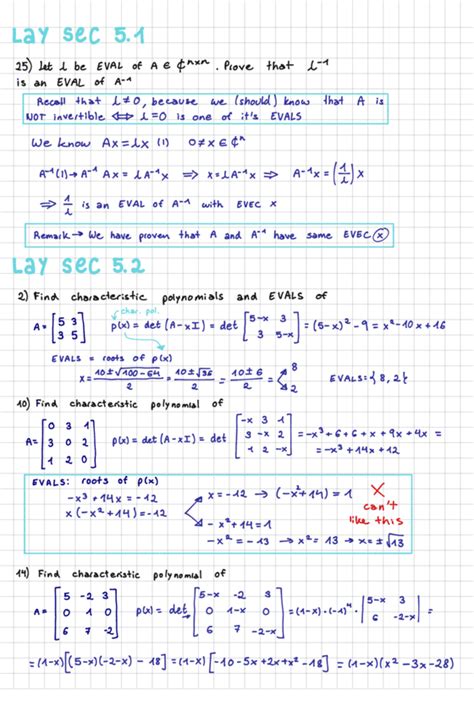 Lay sec 5.1
25) Let λ be EVAL of A ∈ ₵ⁿˣⁿ. Prove that λ⁻¹
is an EVAL of A⁻¹
Recall that λ≠0, because we (should) know that A is
NOT invertible ⟺ λ=0 is one of it's EVALS
We know Ax=λx (1) 0≠x ∈ ₵ⁿ
A⁻¹(1)→A⁻¹ Ax = λA⁻¹x ⟹ x=λA⁻¹x ⟹ A⁻¹x=(1/λ)x
⟹ 1/λ is an EVAL of A⁻¹ with EVEC x
Remark→ We have proven that A and A⁻¹ have same EVEC (x)
Lay sec 5.2
2) Find characteristic polynomials and EVALS of
char. pol.
A=[5 3; 3 5] p(x) = det (A-xI) = det [5-x 3; 3 5-x] = (5-x)² - 9 = x²-10x+16
EVALS = roots of p(x)
x = (10±√100-64)/2 = (10±√36)/2 = (10±6)/2 = 8, 2 EVALS={8, 2}
10) Find characteristic polynomial of
A=[0 3 1; 3 0 2; 1 2 0] p(x) = det (A-xI) = det [-x 3 1; 3 -x 2; 1 2 -x] = -x³+6+6+x+9x+4x =
= -x³+14x+12
EVALS: roots of p(x)
-x³+14x=-12
x(-x²+14)=-12
x=-12 → (-x²+14)=1 X
-x²+14=1
-x²=-13 → x²=13 → x=±√13
can't
like this
14) Find characteristic polynomial of
A=[5 -2 3; 0 1 0; 6 7 -2] p(x) = det [5-x -2 3; 0 1-x 0; 6 7 -2-x] = (1-x)·(-1)⁴·|5-x 3; 6 -2-x| =
= (1-x)[(5-x)(-2-x) - 18] = (1-x)[-10-5x+2x+x²-18] = (1-x)(x²-3x-28)